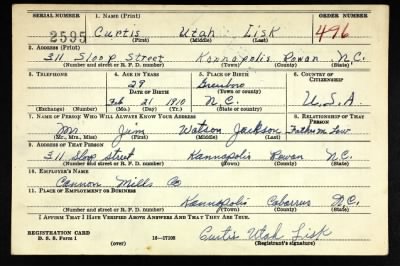 SERIAL NUMBER 1. NAME (Print) ORDER NUMBER
2595 Curtis Utah Lisk 496
(First) (Middle) (Last)
2. ADDRESS (Print)
311 Sloop Street Kannapolis Rowan N.C.
(Number and street or R. F. D. number) (Town) (County) (State)
3. TELEPHONE 4. AGE IN YEARS 5. PLACE OF BIRTH 6. COUNTRY OF CITIZENSHIP
29 Greensboro
DATE OF BIRTH (Town or county)
Feb 21 1910 N.C. U.S.A.
(Exchange) (Number) (Mo.) (Day) (Yr.) (State or country)
7. NAME OF PERSON WHO WILL ALWAYS KNOW YOUR ADDRESS 8. RELATIONSHIP OF THAT PERSON
Mr. Jim Watson Jackson Father n Law
(Mr., Mrs., Miss) (First) (Middle) (Last)
9. ADDRESS OF THAT PERSON
311 Sloop street Kannapolis Rowan N.C.
(Number and street or R. F. D. number) (Town) (County) (State)
10. EMPLOYER'S NAME
Cannon Mills Co
11. PLACE OF EMPLOYMENT OR BUSINESS
Kannapolis Cabarrus N.C.
(Number and street or R. F. D. number) (Town) (County) (State)
I AFFIRM THAT I HAVE VERIFIED ABOVE ANSWERS AND THAT THEY ARE TRUE.
REGISTRATION CARD
D. S. S. Form 1 (over) 16—17105 Curtis Utah Lisk
(Registrant's signature)